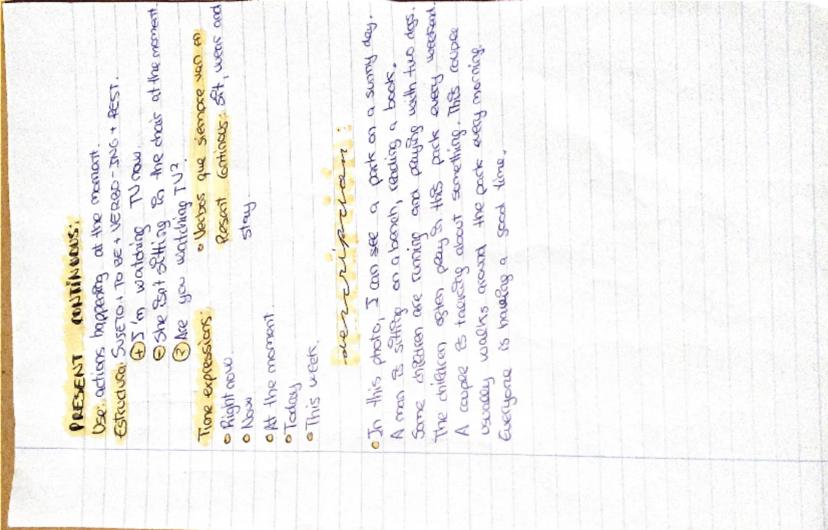 PRESENT CONTINUOUS:
Use: actions happening at the moment.
Estructura: SUJETO + TO BE + VERBO-ING + REST.
+ I'm watching TV now.
- She isn't sitting in the chair at the moment.
? Are you watching TV?
Time expressions:
• Right now
• Now
• At the moment
• Today
• This week.
• Verbos que siempre van en
Present Continous: sit, wear and
stay.
description:
• In this photo, I can see a park on a sunny day.
A man is sitting on a bench, reading a book.
Some children are running and playing with two dogs.
The children often play in this park every weekend.
A couple is talking about something. This couple
usually walks around the park every morning.
Everyone is having a good time.